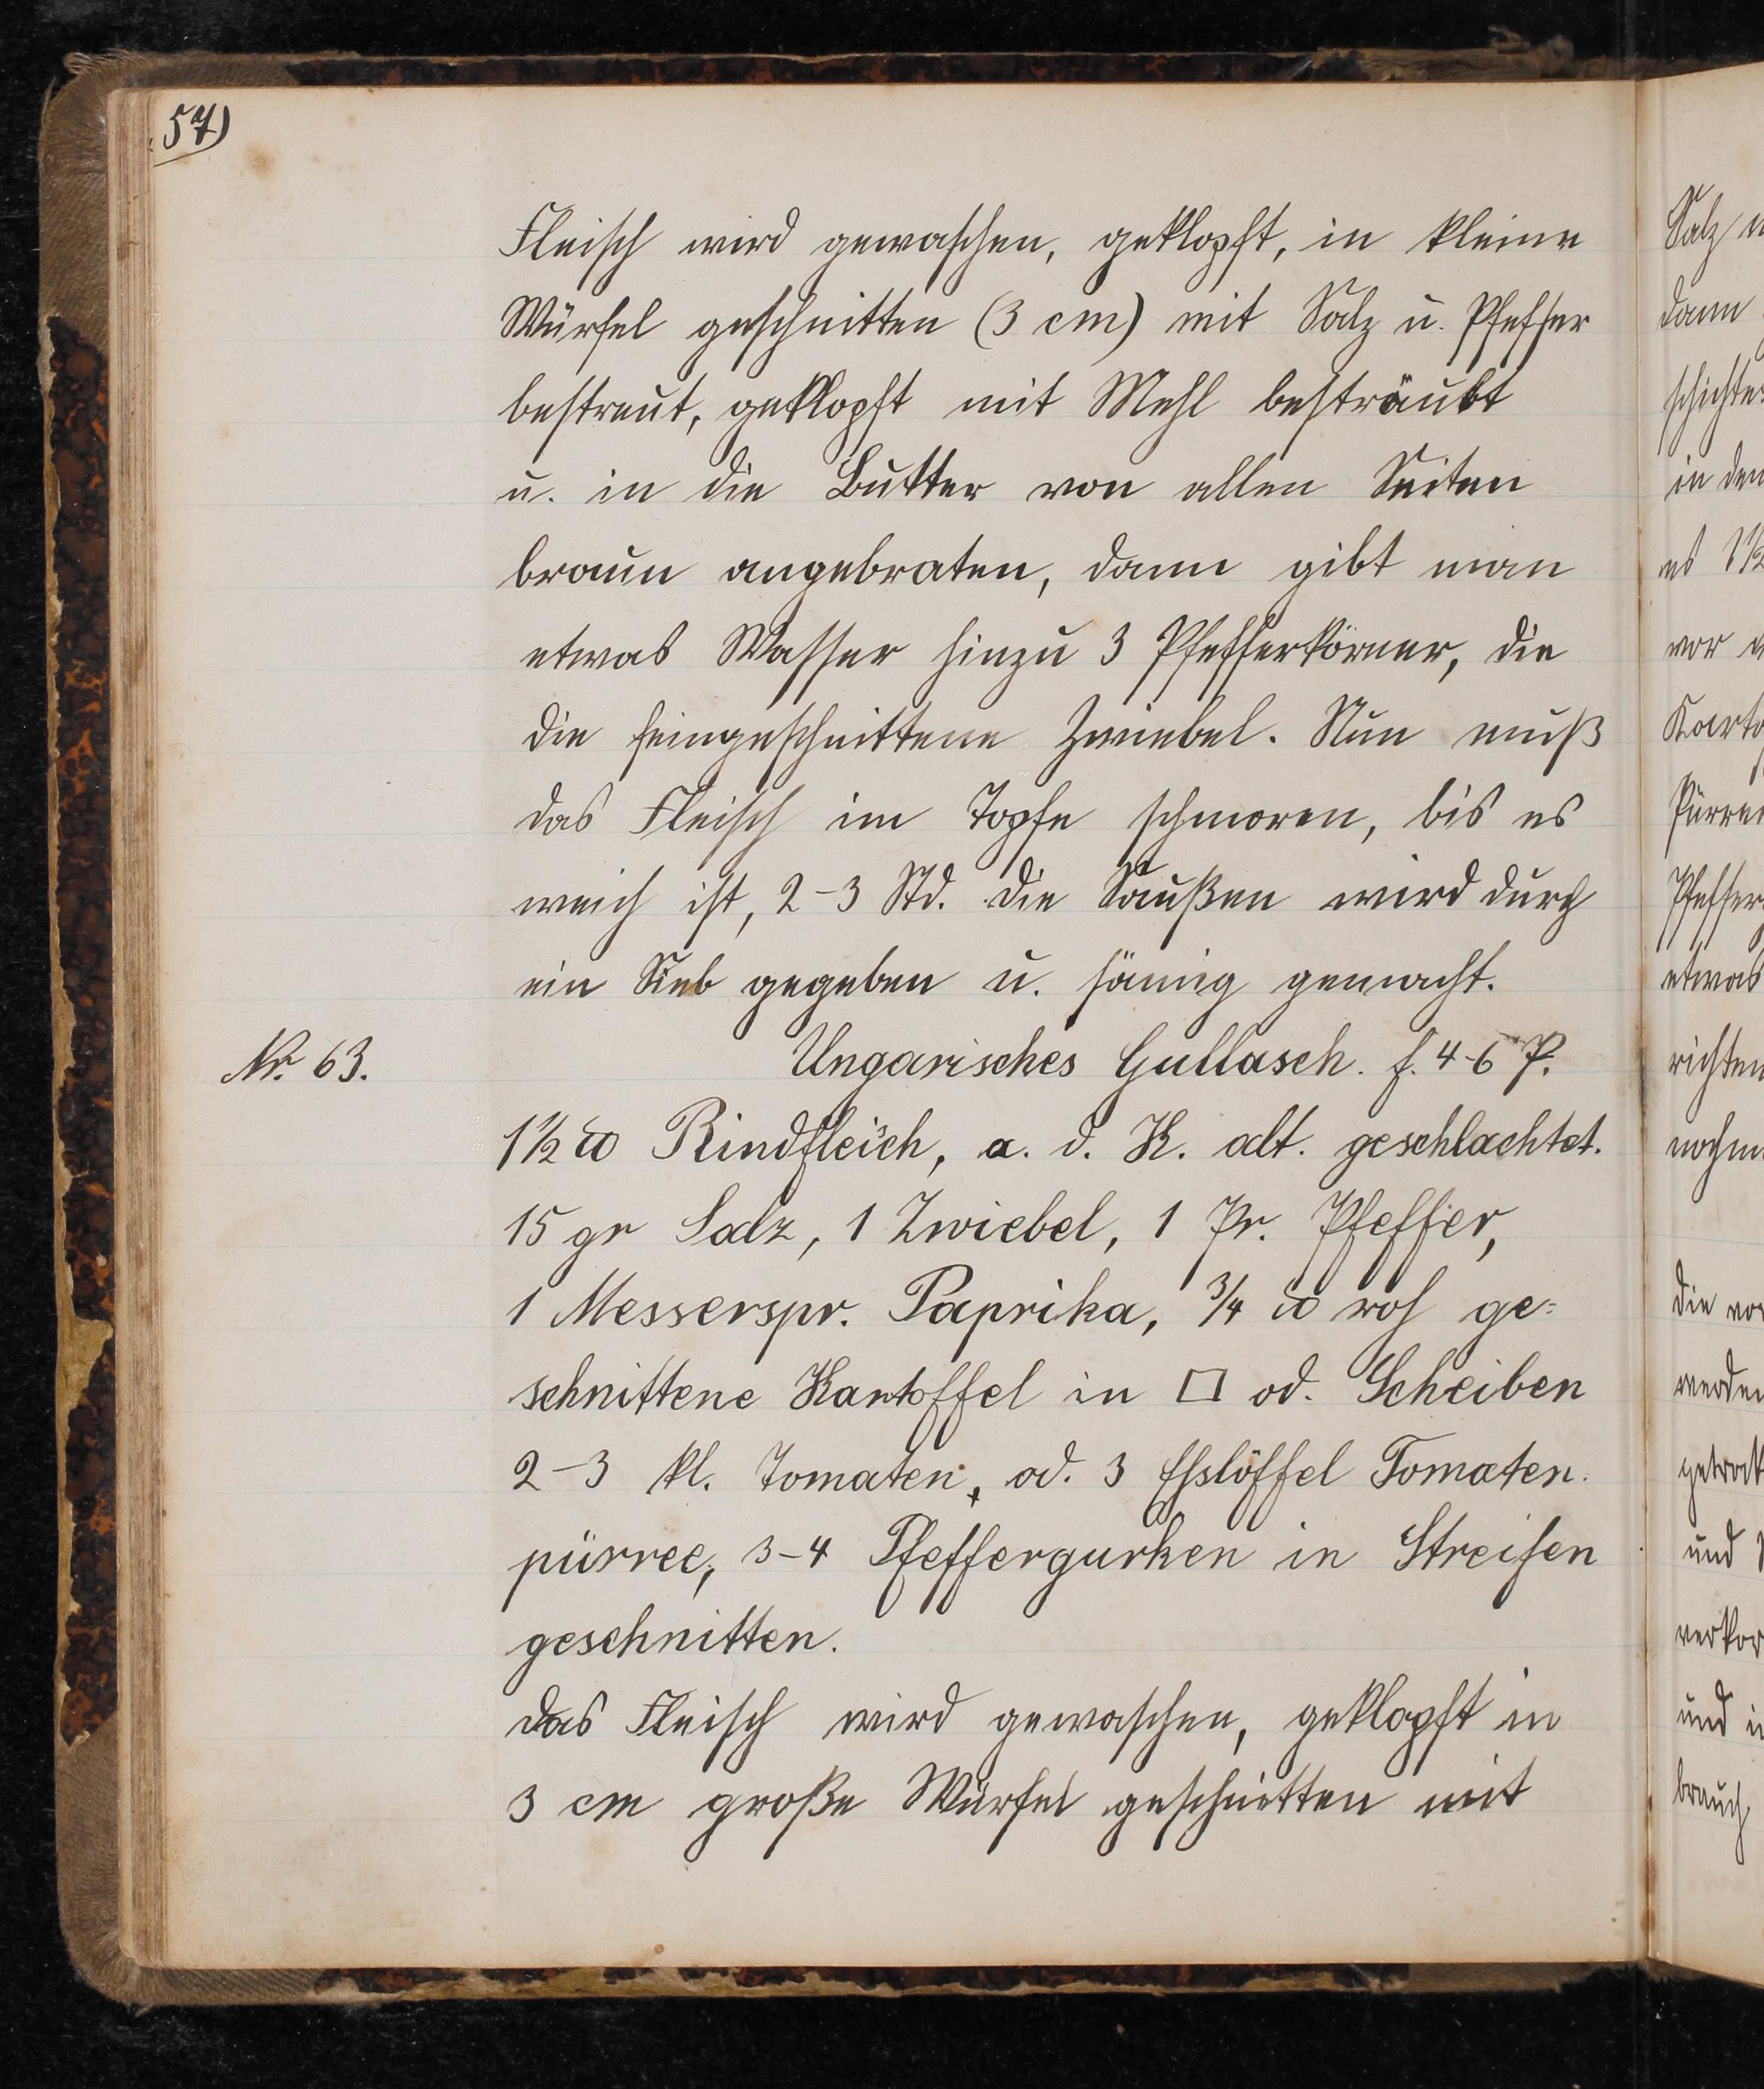 57)
Fleisch wird gewaschen, geklopft, in kleine
Würfel geschnitten (3 cm) mit Salz u. Pfeffer
bestreut, geklopft mit Mehl besträubt
u. in die Butter von allen Seiten
braun angebraten, dann gibt man
etwas Wasser hinzu 3 Pfefferkörner, die
die feingeschnittene Zwiebel. Nun muß
das Fleisch im Topfe schmoren, bis es
weich ist, 2-3 Std. die Saußen wird durch
ein Sieb gegeben u. sämig gemacht.
Nr. 63. Ungarisches Gullasch. f. 4-6 P.
1½ ℔ Rindfleisch, a. d. K. alt. geschlachtet.
15 gr Salz, 1 Zwiebel, 1 Pr. Pfeffer,
1 Messerspr. Paprika, ¾ ℔ roh ge=
schnittene Kartoffel in □ od. Scheiben
2-3 kl. Tomaten, od. 3 Esslöffel Tomaten.
pürree, 3-4 Pfeffergurken in Streifen
geschnitten.
das Fleisch wird gewaschen, geklopft in
3 cm große Würfel geschnitten mit
Salz
dann
schichte
in den
es 1½
vor
Karto
Pürree
Pfeffer
etwas
richten
nochm
die vor
werden
getrock
und
verkor
und in
brauch